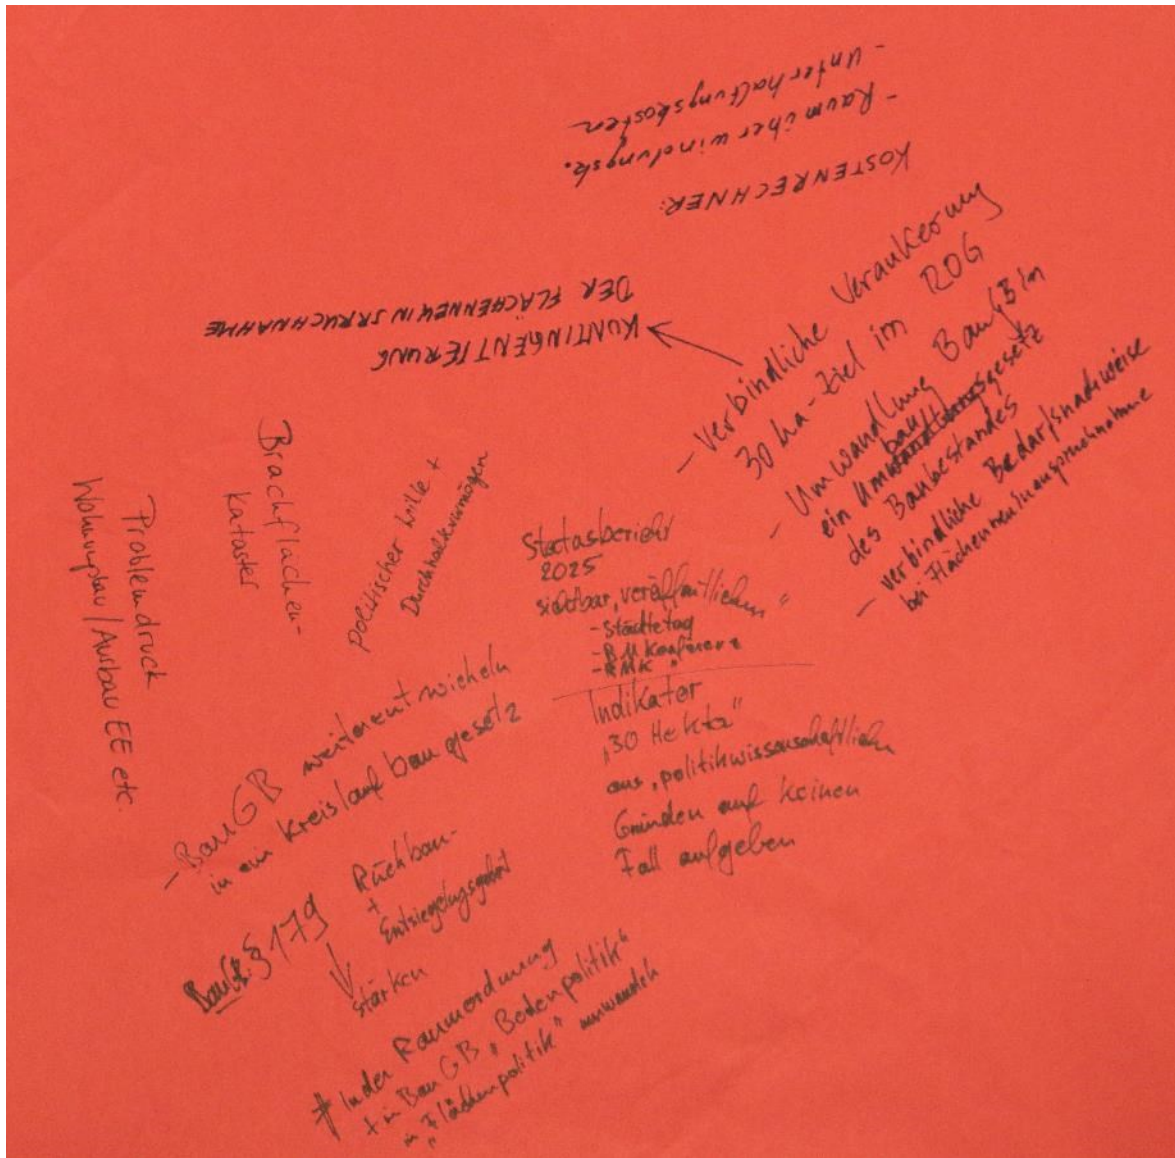 KOSTENRECHNER:
- Raumüberwindungsk.
- Unterhaltungskosten
KONTINGENTIERUNG
DER FLÄCHENNEUINSPRUCHNAHME
- verbindliche Verankerung
30 ha-Ziel im ROG
- Umwandlung BauGB in
ein Umbaugesetz
des Baubestandes
- verbindliche Bedarfsnachweise
bei Flächenneuinanspruchnahme
Problemdruck
Wohnungsbau / Ausbau EE etc.
Brachflächen-
kataster
politischer Wille +
Durchhaltevermögen
Statusbericht
2025
sichtbar „veröffentlichen“
- Städtetag
- BM Konferenz
- RMK "
Indikator
„30 Hektar“
aus „politikwissenschaftlichen
Gründen auf keinen
Fall aufgeben
- BauGB weiterentwickeln
in ein Kreislaufbaugesetz
BauGB: § 179
Rückbau-
+
Entsiegelungsgebot
stärken
In der Raumordnung
+ in BauGB „Bodenpolitik“
in „Flächenpolitik“ umwandeln